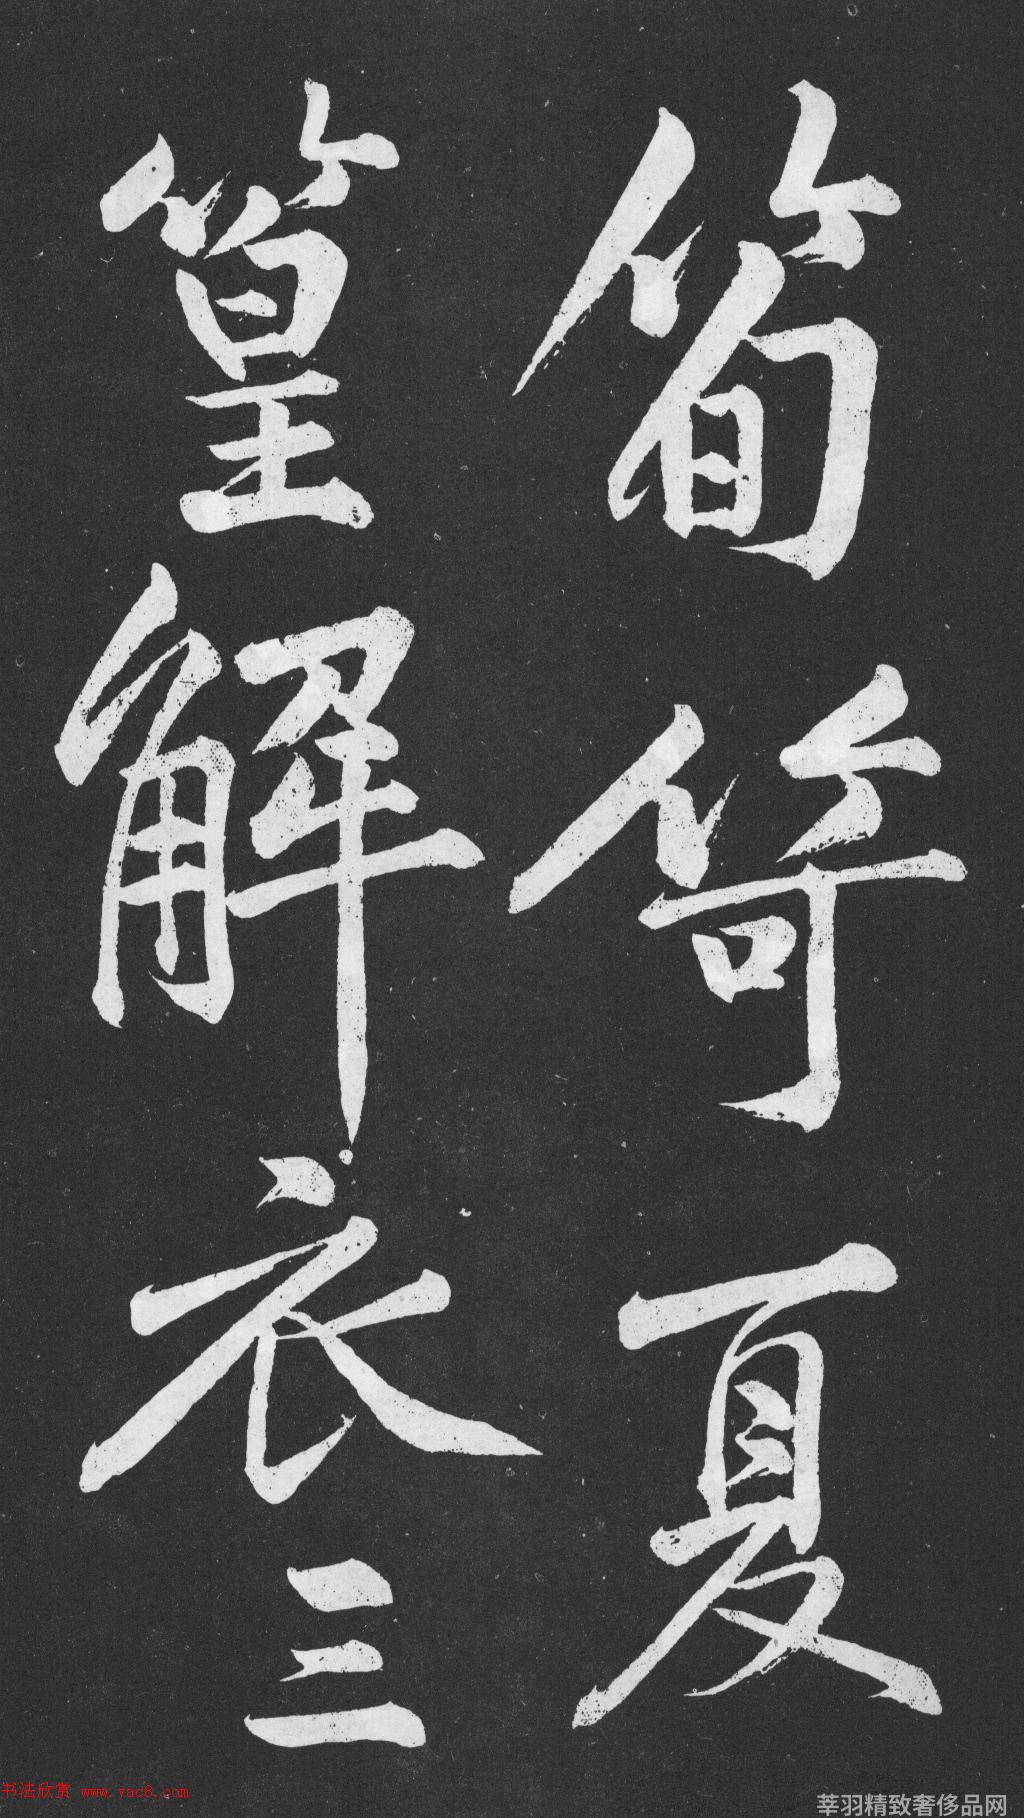 筍笴夏
篁解衣三
书法欣赏 www.yac8.com
莘羽精致奢侈品网